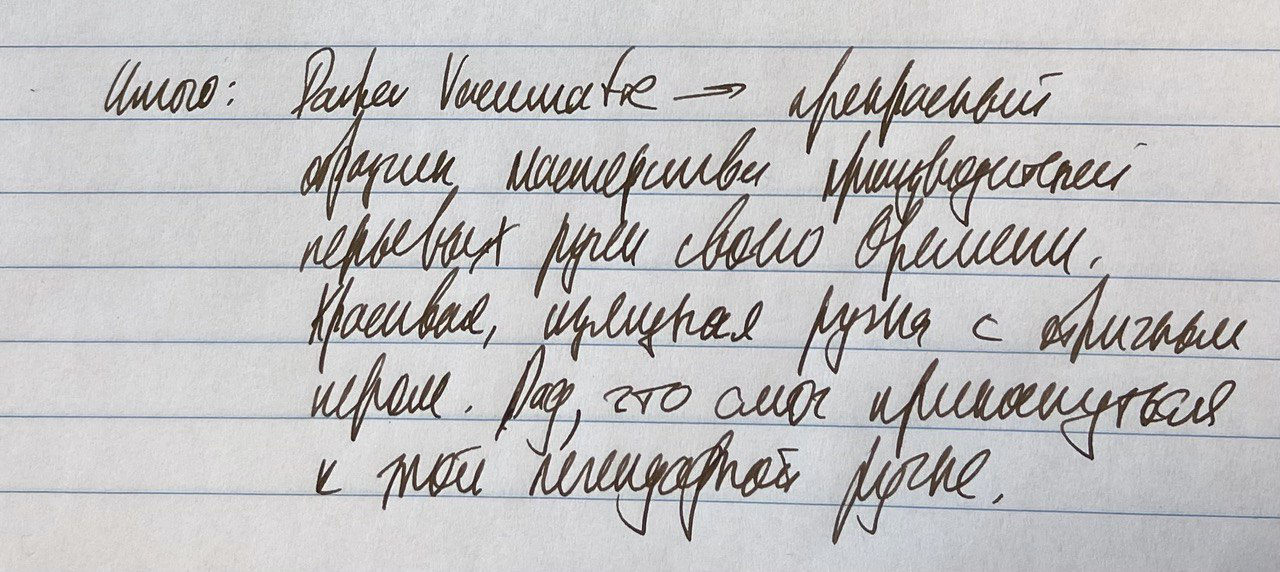 Итого: Parker Vacumatic → прекрасный
образчик мастерства производителей
перьевых ручек своего времени.
Красивая, изящная ручка с отличным
пером. Рад, что смог прикоснуться
к этой легендарной ручке.